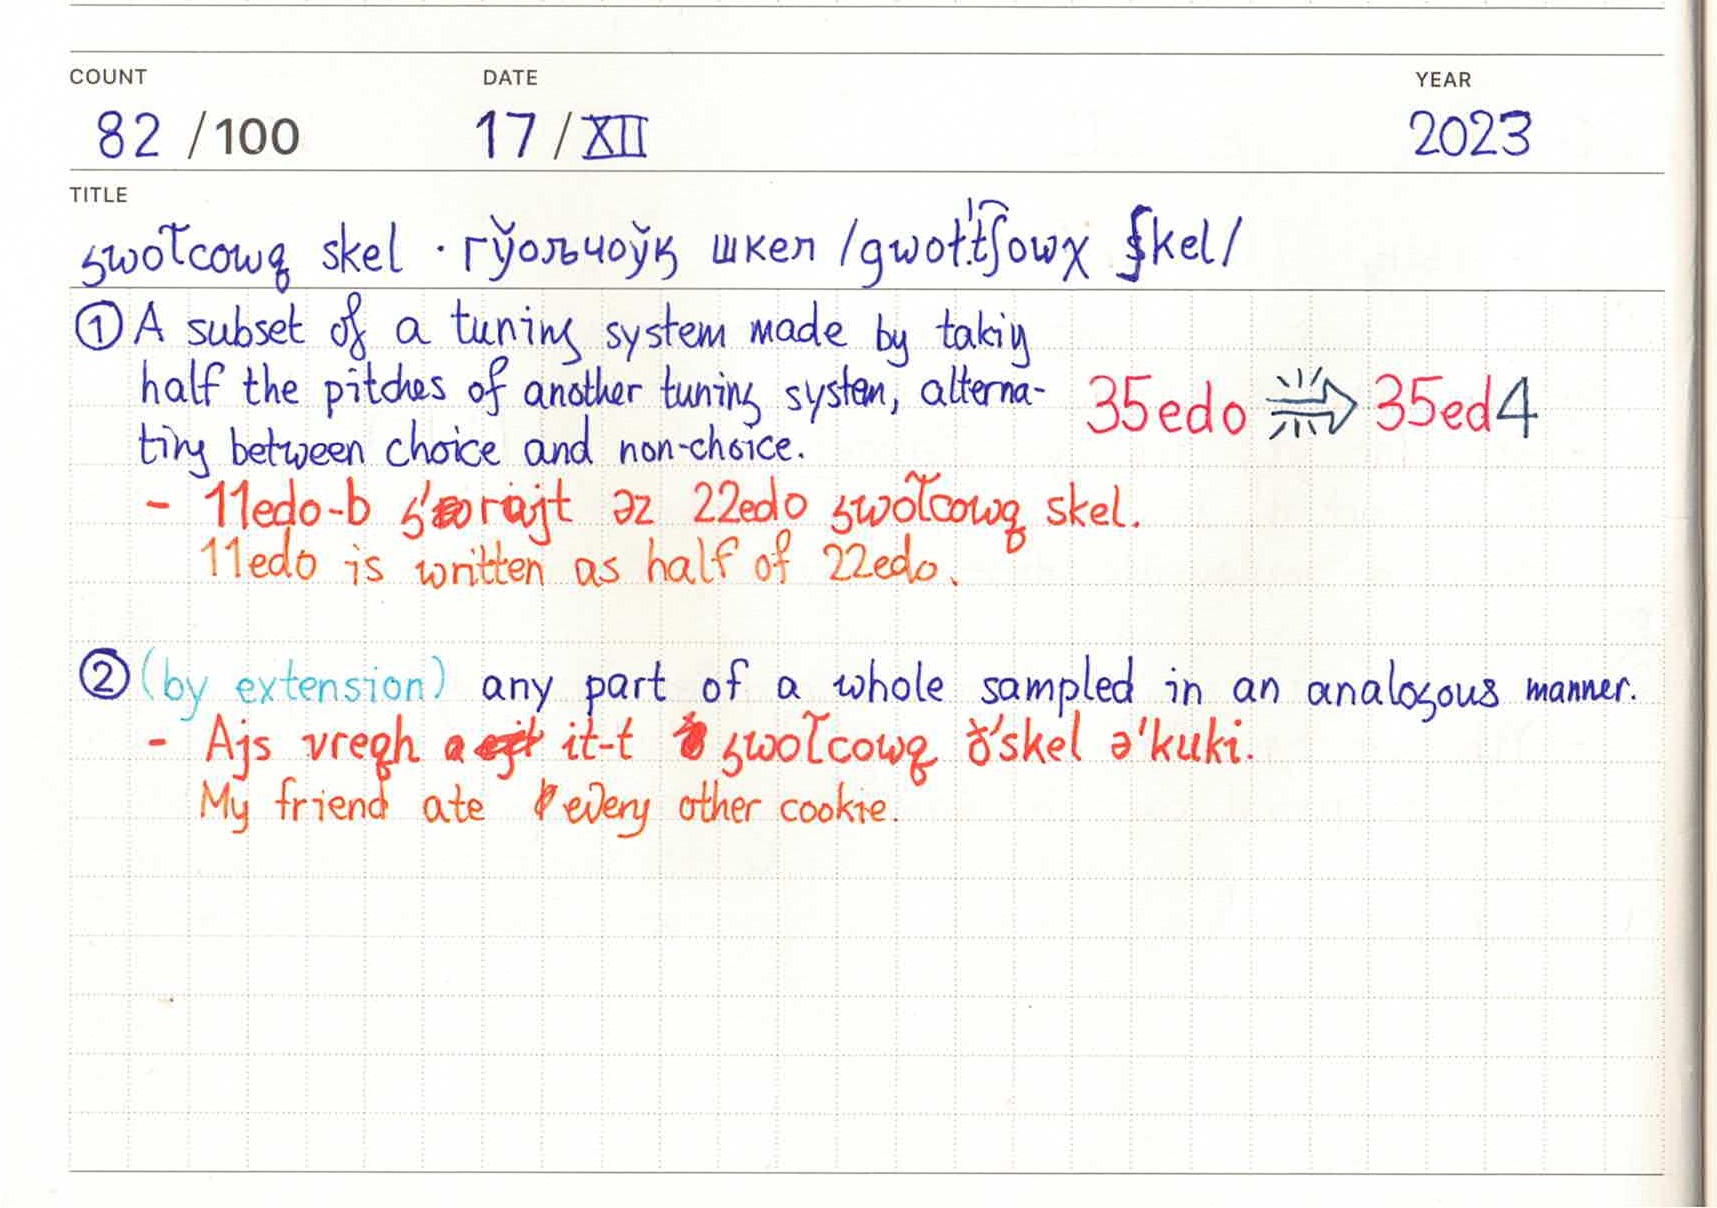 COUNT DATE YEAR
82 /100 17/XII 2023
TITLE
gwol͠cowq skel · гўољчоўқ шкел /gwoɫ.ˈt͡ʃowχ ʃkel/
① A subset of a tuning system made by taking
half the pitches of another tuning system, alterna-
ting between choice and non-choice.
35edo ⇒ 35ed4
- 11edo-b g' rajt əz 22edo gwol͠cowq skel.
11edo is written as half of 22edo.
② (by extension) any part of a whole sampled in an analogous manner.
- Ajs vreqh it-t gwol͠cowq ŏ'skel ə'kuki.
My friend ate every other cookie.